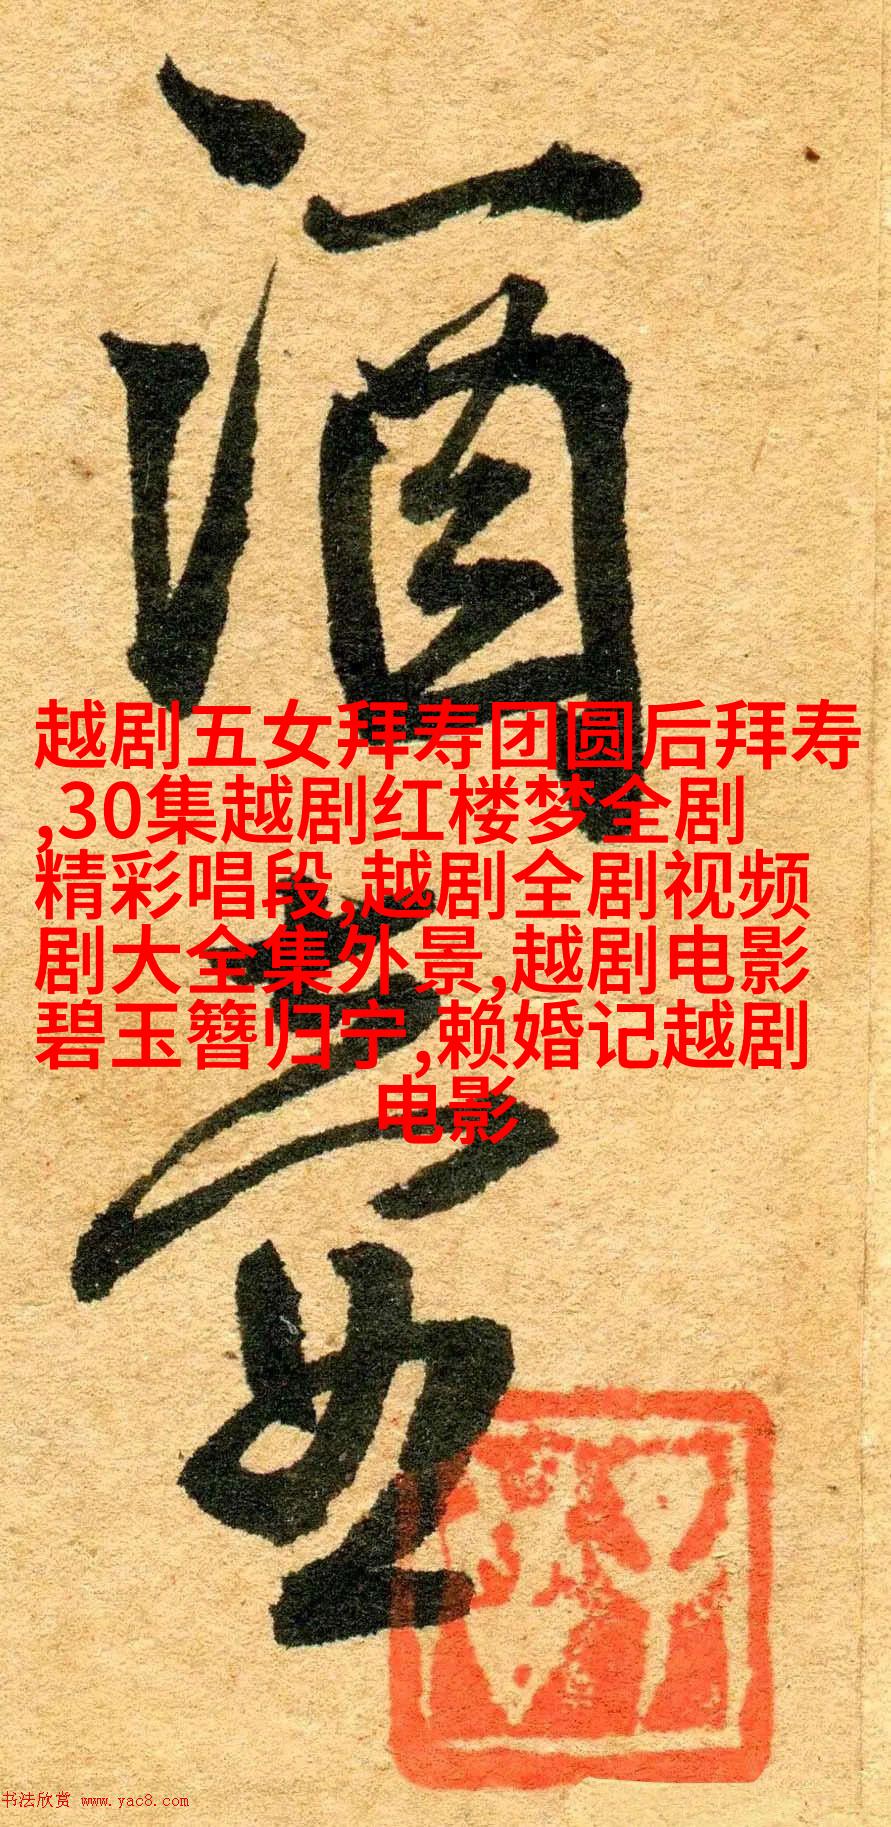 酒
越剧五女拜寿团圆后拜寿
,30集越剧红楼梦全剧
精彩唱段,越剧全剧视频
剧大全集外景,越剧电影
碧玉簪归宁,赖婚记越剧
电影
书法欣赏 www.yac8.com